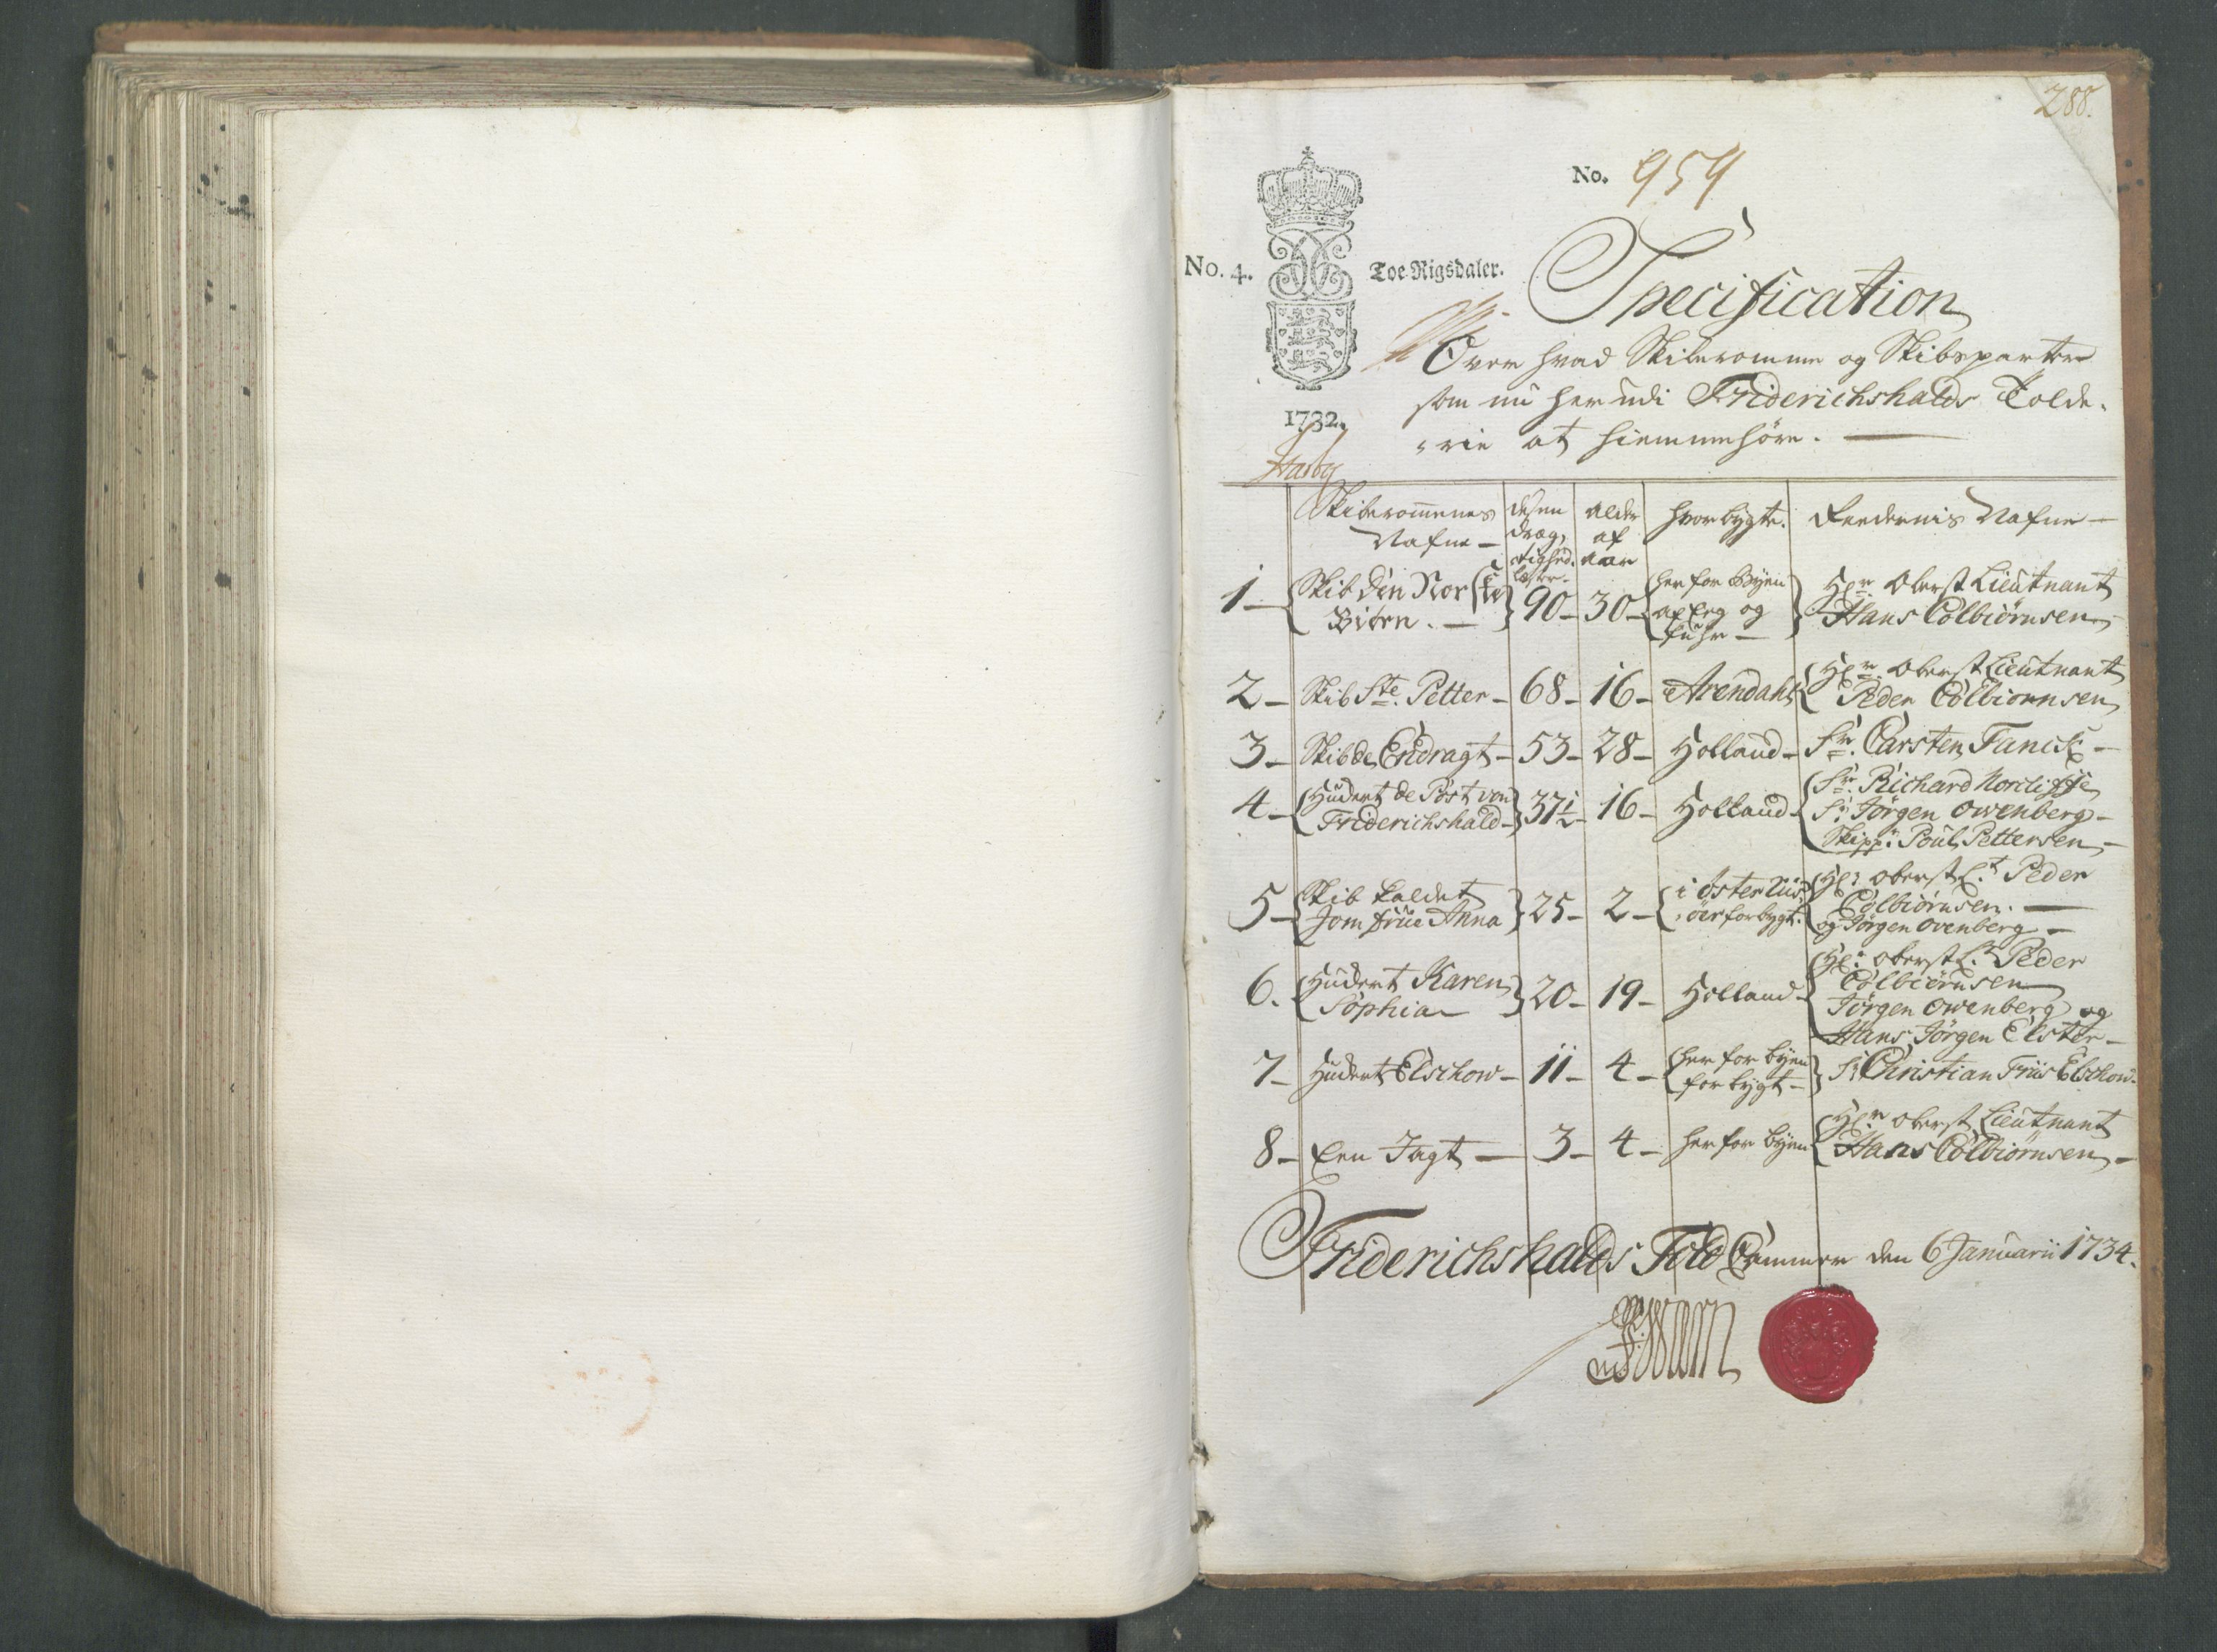 288.
No. 954
No. 4.
Toe Rigsdaler.
1732.
Specification
Over hvad Skiberomme og Skibsparter
som nu her udi Friderichshalds Tolde-
rie at hiemmehöre.
Skiberommenes Nafne
desen drægtighed Læster.
alder af Aar
hvor bygt.
Reedernis Nafne
1 Skib den Norske Biörn. 90 30 her for Byen af Eeg og fuhr Hr. Oberst Lieutnant Hans Colbiörnsen
2 Skib Ste. Petter 68 16 Arendahl Hr. Oberst Lieutnant Peder Colbiörnsen
3 Skib de Endragt 53 28 Holland Sr. Carsten Tanck
4 Huckert de Post von Friderichshald 37½ 16 Holland Sr. Richard Norcliffe Sr. Jörgen Owenberg Skippr. Poul Pettersen
5 Skib kaldet Jomfrue Anna 25 2 i Öster Riisöer forbygt. Hr. Oberst Lt. Peder Colbiörnsen. og Jörgen Ovenberg
6. Huckert Karen Sophia 20 19 Holland Hr. Oberst Lt. Peder Colbiörnsen Jörgen Owenberg og Hans Jörgen Elster
7 Huckert Elschow 11 4 her for byen forbygt Sr. Christian Friis Elschow.
8 Een Jagt 3 4 her for byen Hr. Oberst Lieutnant Hans Colbiörnsen
Friderichshalds Told Cammer den 6 Januarii 1734.